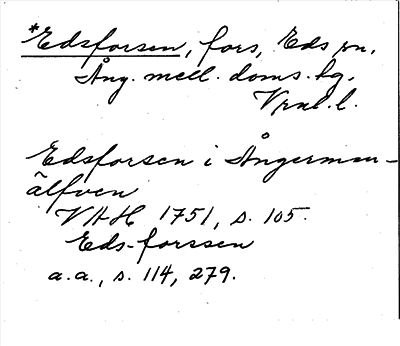 *Edsforsen, fors, Eds sn,
Ång. mell. doms. hg.
Vrnl. l.
Edsforsen i Ångerman-
älfven
VAH 1751, s. 105.
Eds-forssen
a.a., s. 114, 279.